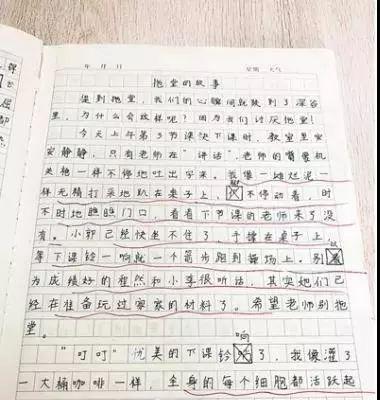 年 月 日 星期 天气
拖堂的故事
提到拖堂,我们的心瞬间就跌到了深谷
里,为什么会这样呢?因为我们讨厌拖堂!
今天上午第3节课快下课时,教室里安
安静静,只有老师在“讲话”,老师的嘴像机
关枪一样不停地吐出字来。我像一摊烂泥一
样无精打采地趴在桌子上,不停动着,时
不时地瞧瞧门口,看看下节课的老师来了没
有。小郭已经快坐不住了,手撑在桌子上,
等下课铃一响就一个箭步跑到操场上。别
为成绩好的崔然和小李很听话,其实她们已
经在准备玩过家家的材料了。希望老师别拖
堂。
响
“叮叮”优美的下课铃了,我像灌了
一大桶咖啡一样,全身的每个细胞都活跃起